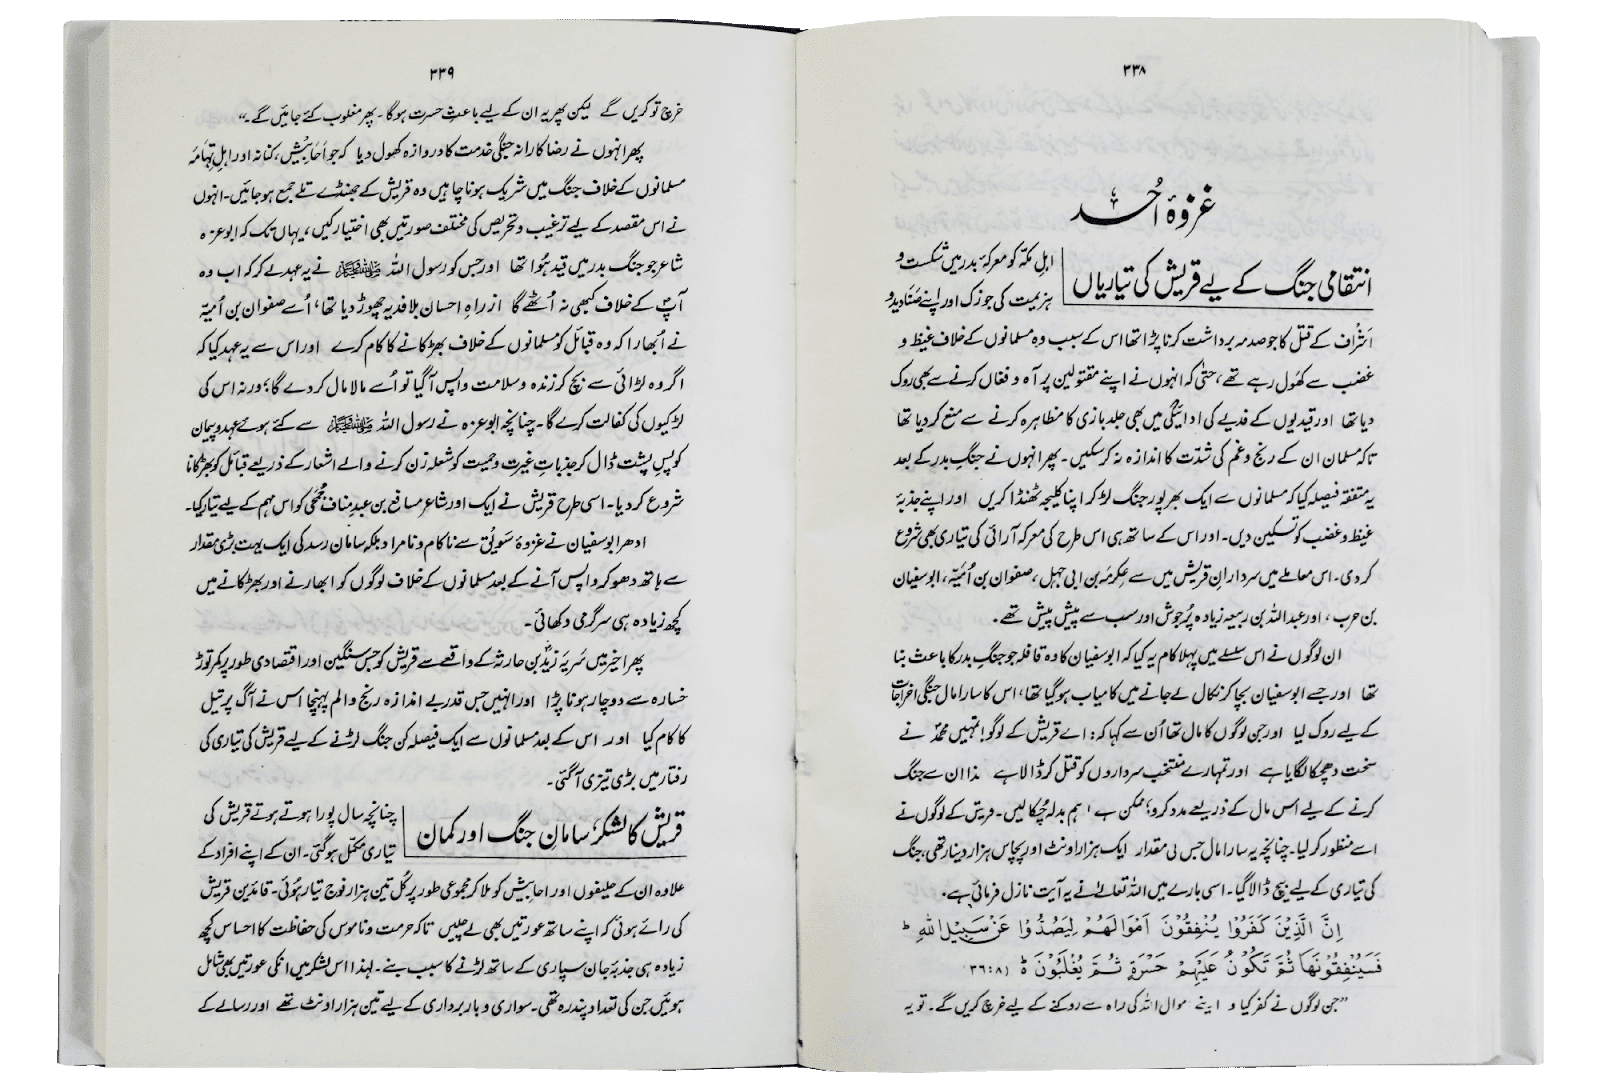 ۳۳۸
غزوۂ اُحد
انتقامی جنگ کے لیے قریش کی تیاریاں
اہلِ مکہ کو معرکۂ بدر میں شکست و
ہزیمت کی جو زک اور اپنے صنادید و
اشراف کے قتل کا جو صدمہ برداشت کرنا پڑا تھا اس کے سبب وہ مسلمانوں کے خلاف غیظ و
غضب سے کھول رہے تھے، حتیٰ کہ انہوں نے اپنے مقتولین پر آہ و فغاں کرنے سے بھی روک
دیا تھا اور قیدیوں کے فدیے کی ادائیگی میں بھی جلد بازی کا مظاہرہ کرنے سے منع کر دیا تھا
تاکہ مسلمان ان کے رنج و غم کی شدّت کا اندازہ نہ کر سکیں۔ پھر انہوں نے جنگِ بدر کے بعد
یہ متفقہ فیصلہ کیا کہ مسلمانوں سے ایک بھرپور جنگ لڑ کر اپنا کلیجہ ٹھنڈا کریں اور اپنے جذبۂ
غیظ و غضب کو تسکین دیں۔ اور اس کے ساتھ ہی اس طرح کی معرکہ آرائی کی تیاری بھی شروع
کر دی۔ اس معاملے میں سردارانِ قریش میں سے عکرمہ بن ابی جہل، صفوان بن اُمیّہ، ابوسفیان
بن حرب، اور عبداللہ بن ربیعہ زیادہ پُرجوش اور سب سے پیش پیش تھے۔
ان لوگوں نے اس سلسلے میں پہلا کام یہ کیا کہ ابوسفیان کا وہ قافلہ جو جنگِ بدر کا باعث بنا
تھا اور جسے ابوسفیان بچا کر نکال لے جانے میں کامیاب ہو گیا تھا، اس کا سارا مال جنگی اخراجات
کے لیے روک لیا اور جن لوگوں کا مال تھا اُن سے کہا کہ: اے قریش کے لوگو! تمہیں محمدؐ نے
سخت دھچکا لگایا ہے اور تمہارے منتخب سرداروں کو قتل کر ڈالا ہے لہذا ان سے جنگ
کرنے کے لیے اس مال کے ذریعے مدد کرو؛ ممکن ہے ہم بدلہ چکا لیں۔ قریش کے لوگوں نے
اسے منظور کر لیا۔ چنانچہ یہ سارا مال جس کی مقدار ایک ہزار اونٹ اور پچاس ہزار دینار تھی، جنگ
کی تیاری کے لیے بیچ ڈالا گیا۔ اسی بارے میں اللہ تعالےٰ نے یہ آیت نازل فرمائی ہے۔
اِنَّ الَّذِیْنَ کَفَرُوْا یُنْفِقُوْنَ اَمْوَالَهُمْ لِیَصُدُّوْا عَنْ سَبِیْلِ اللّٰہِ ؕ
فَسَیُنْفِقُوْنَهَا ثُمَّ تَکُوْنُ عَلَیْهِمْ حَسْرَۃً ثُمَّ یُغْلَبُوْنَ ؕ (۸:۳۶)
”جن لوگوں نے کفر کیا وہ اپنے اموال اللہ کی راہ سے روکنے کے لیے خرچ کریں گے۔ تو یہ
۳۳۹
خرچ تو کریں گے لیکن پھر یہ ان کے لیے باعثِ حسرت ہوگا۔ پھر مغلوب کئے جائیں گے۔“
پھر انہوں نے رضاکارانہ جنگی خدمت کا دروازہ کھول دیا کہ جو احابیش، کنانہ اور اہلِ تہامہ
مسلمانوں کے خلاف جنگ میں شریک ہونا چاہیں وہ قریش کے جھنڈے تلے جمع ہو جائیں۔ انہوں
نے اس مقصد کے لیے ترغیب و تحریص کی مختلف صورتیں بھی اختیار کیں، یہاں تک کہ ابوعزہ
شاعر جو جنگِ بدر میں قید ہوا تھا اور جس کو رسول اللہ ﷺ نے یہ عہد لے کر کہ اب وہ
آپؐ کے خلاف کبھی نہ اُٹھے گا ازراہِ احسان بلا فدیہ چھوڑ دیا تھا، اُسے صفوان بن اُمیّہ
نے اُبھارا کہ وہ قبائل کو مسلمانوں کے خلاف بھڑکانے کا کام کرے اور اس سے یہ عہد کیا کہ
اگر وہ لڑائی سے بچ کر زندہ و سلامت واپس آ گیا تو اُسے مالا مال کر دے گا؛ ورنہ اس کی
لڑکیوں کی کفالت کرے گا۔ چنانچہ ابوعزہ نے رسول اللہ ﷺ سے کئے ہوئے عہد و پیمان
کو پسِ پشت ڈال کر جذباتِ غیرت و حمیت کو شعلہ زن کرنے والے اشعار کے ذریعے قبائل کو بھڑکانا
شروع کر دیا۔ اسی طرح قریش نے ایک اور شاعر مسافع بن عبد مناف جُمحی کو اس مہم کے لیے تیار کیا۔
ادھر ابوسفیان نے غزوۂ سَویق سے ناکام و نامراد بلکہ سامانِ رسد کی ایک بہت بڑی مقدار
سے ہاتھ دھو کر واپس آنے کے بعد مسلمانوں کے خلاف لوگوں کو ابھارنے اور بھڑکانے میں
کچھ زیادہ ہی سرگرمی دکھائی۔
پھر اخیر میں سَریہ زیدؓ بن حارثہ کے واقعے سے قریش کو جس سنگین اور اقتصادی طور پر کمر توڑ
خسارہ سے دوچار ہونا پڑا اور انہیں جس قدر بے اندازہ رنج و الم پہنچا اس نے آگ پر تیل
کا کام کیا اور اس کے بعد مسلمانوں سے ایک فیصلہ کن جنگ لڑنے کے لیے قریش کی تیاری کی
رفتار میں بڑی تیزی آ گئی۔
قریش کا لشکر، سامانِ جنگ اور کمان
چنانچہ سال پورا ہوتے ہوتے قریش کی
تیاری مکمّل ہو گئی۔ ان کے اپنے افراد کے
علاوہ ان کے حلیفوں اور احابیش کو ملا کر مجموعی طور پر کُل تین ہزار فوج تیار ہوئی۔ قائدینِ قریش
کی رائے ہوئی کہ اپنے ساتھ عورتیں بھی لے چلیں تاکہ حرمت و ناموس کی حفاظت کا احساس کچھ
زیادہ ہی جذبۂ جان سپاری کے ساتھ لڑنے کا سبب بنے۔ لہذا اس لشکر میں انکی عورتیں بھی شامل
ہوئیں جن کی تعداد پندرہ تھی۔ سواری و بار برداری کے لیے تین ہزار اونٹ تھے اور رسالے کے